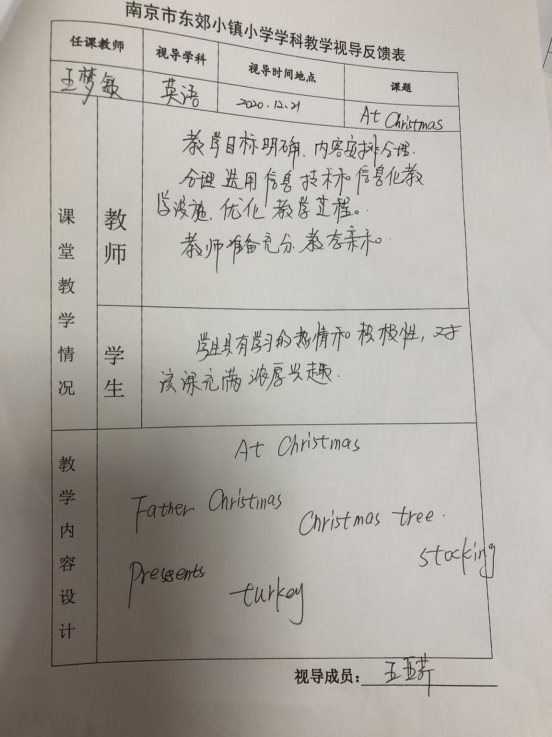 南京市东郊小镇小学学科教学视导反馈表
任课教师 视导学科 视导时间地点 课题
王梦敏 英语 2020.12.21 At Christmas
课堂教学情况
教师
教学目标明确、内容安排合理.
合理选用信息技术和信息化教
学设施,优化教学过程。
教师准备充分,教态亲和。
学生
学生具有学习的热情和积极性,对于
该课充满浓厚兴趣.
教学内容设计
At Christmas
Father Christmas
Christmas tree.
stocking
Presents
turkey
视导成员:王亚